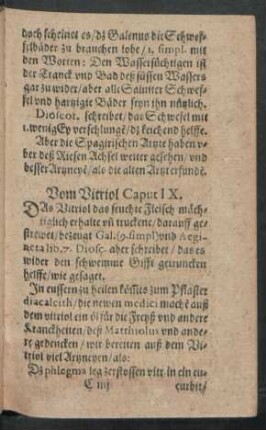 doch scheinet es/dz Galenus die Schwef-
felbäder zu brauchen lobe/1. simpl. mit
den Worten: Den Wassersüchtigen ist
der Tranck vnd Bad deß süssen Wassers
gar zu wider/aber alle Salniter Schwef-
fel vnd hartzige Bäder seyn ihn nützlich.
Dioscor. schreibet/das Schwefel mit
1. wenig Ey verschlungē/dz keichend helffe.
Aber die Spagirischen Artzte haben v-
ber deß Riesen Achsel weiter gesehen/vnd
besser Artzneyē/als die alten Artzt erfundē.
Vom Vitriol Caput IX.
DAs Vitriol das feuchte Fleisch mäch-
tiglich erhalte vñ truckene/darauff ge-
strewet/bezeugt Gal.(9. simpl) vnd Aegi-
neta lib. 7. Diosc. aber schreibet/das es
wider den schwemme Gifft getruncken
helffe/wie gesaget.
In eussern zu heilen kömts zum Pflaster
diacalcith/die newen medici machē auß
dem vitriol ein öl für die Freyß vnd andere
Kranckheiten/deß Matthiolus vnd ande-
re gedencken/wir bereiten auß dem Vi-
triol viel Artzneyen/als:
Dz phlegma leg zerstossen vitr. in ein cu-
C iiij curbit/